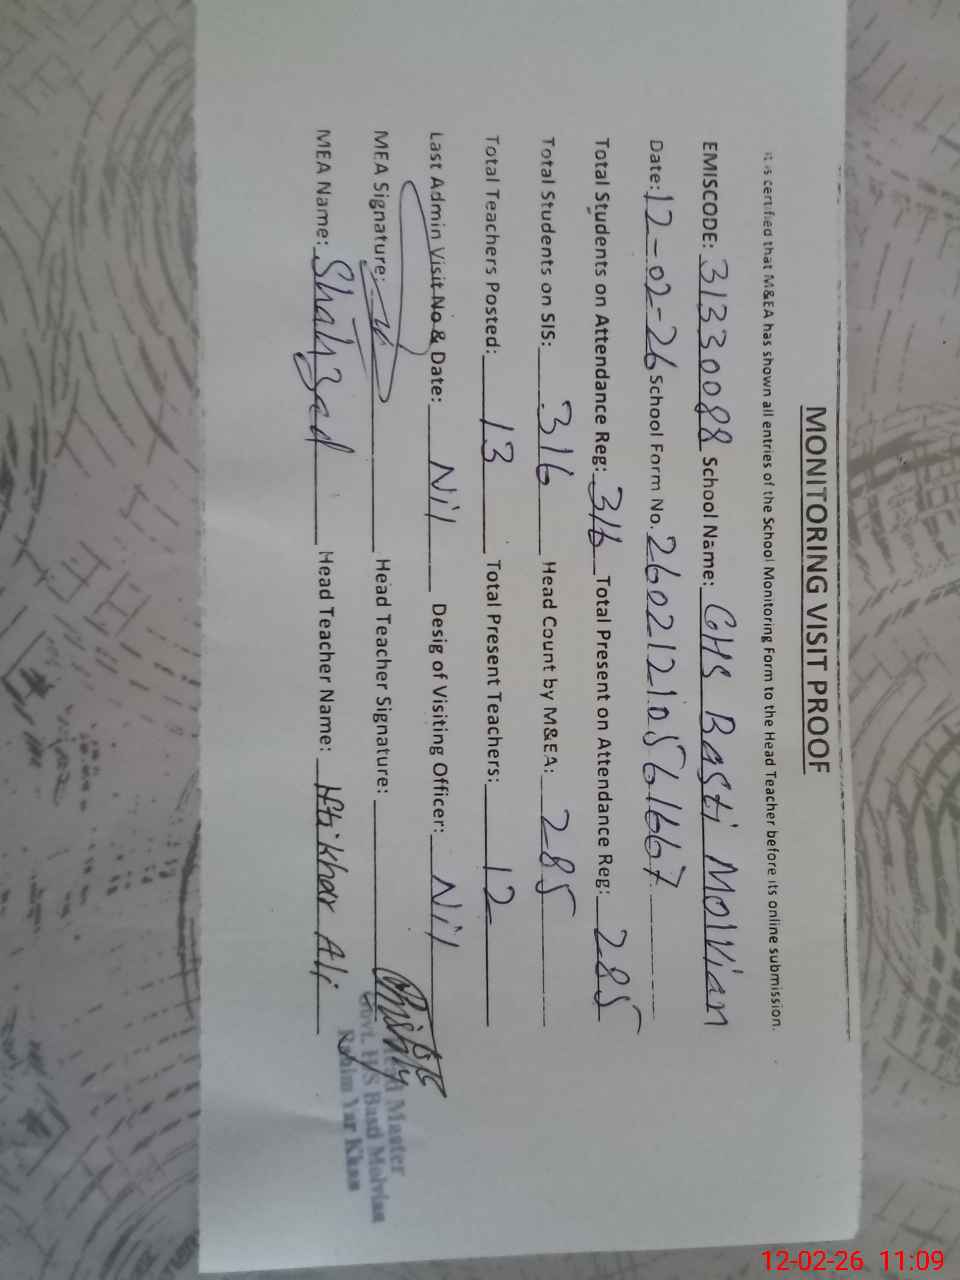 MONITORING VISIT PROOF
It is certified that M&EA has shown all entries of the School Monitoring Form to the Head Teacher before its online submission.
EMISCODE: 31330088 School Name: GHS Basti Molvian
Date: 12-02-26 School Form No. 26021210561667
Total Students on Attendance Reg: 316 Total Present on Attendance Reg: 285
Total Students on SIS: 316 Head Count by M&EA: 285
Total Teachers Posted: 13 Total Present Teachers: 12
Last Admin Visit No & Date: Nil Desig of Visiting Officer: Nil
MEA Signature: Head Teacher Signature:
MEA Name: Shahzad Head Teacher Name: Iftikhar Ali
Head Master
Govt. H/S Basti Molvian
Rahim Yar Khan
12-02-26 11:09